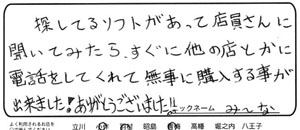 探してるソフトがあって店員さんに
聞いてみたら、すぐに他の店とかに
電話をしてくれて無事に購入する事が
出来ました！ありがとうございました!!
ックネーム み〜な
よく利用されるお店を
立川 昭島 高幡 堀之内 八王子